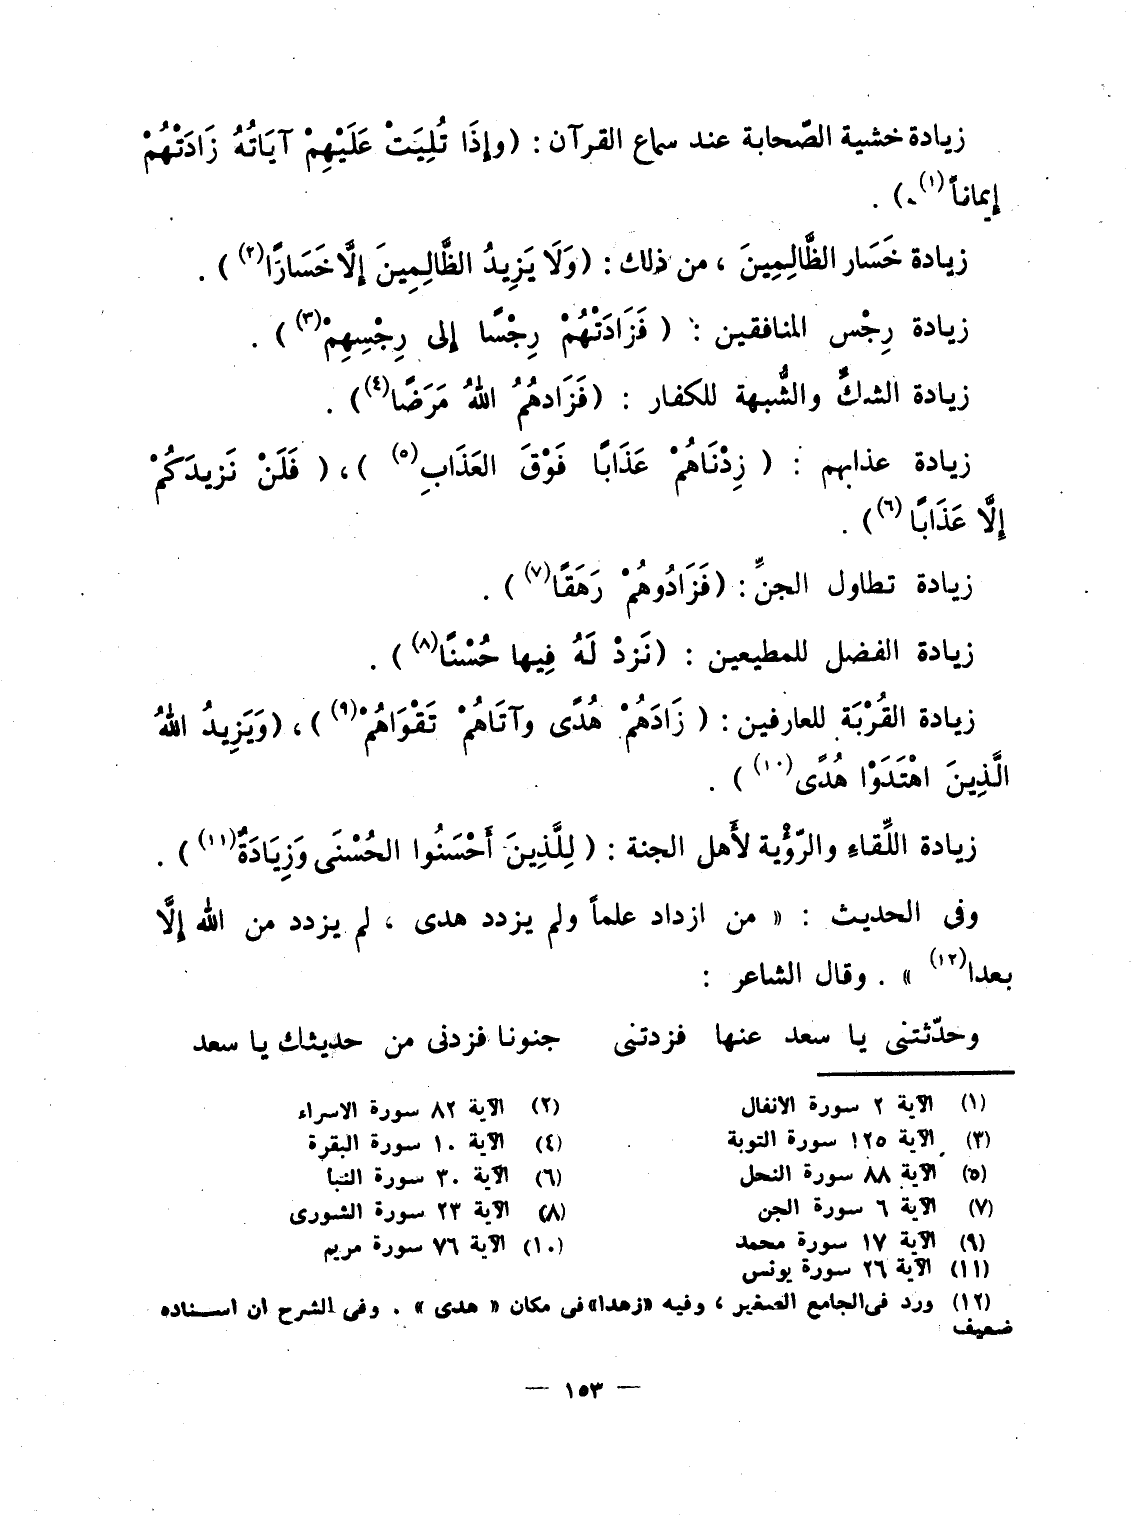 زيادة خشية الصّحابة عند سماع القرآن : (وإِذَا تُلِيَتْ عَلَيْهِمْ آيَاتُهُ زَادَتْهُمْ
إِيمَاناً(١)) .
زيادة خَسَار الظَّالِمِينَ ، من ذلك : (وَلَا يَزِيدُ الظَّالِمِينَ إِلَّا خَسَارًا(٢)) .
زيادة رِجْس المنافقين : ( فَزَادَتْهُمْ رِجْسًا إلى رِجْسِهِمْ(٣)) .
زيادة الشكّ والشُّبهة للكفار : (فَزَادهُمُ اللهُ مَرَضًا(٤)) .
زيادة عذابهم : ( زِدْنَاهُمْ عَذَابًا فَوْقَ العَذَابِ(٥) ) ، ( فَلَنْ نَزِيدَكُمْ
إِلَّا عَذَابًا(٦)) .
زيادة تطاول الجنِّ : (فَزَادُوهُمْ رَهَقًا(٧)) .
زيادة الفضل للمطيعين : (نَزِدْ لَهُ فِيها حُسْنًا(٨)) .
زيادة القُرْبَة للعارفين : ( زَادَهُمْ هُدًى وآتَاهُمْ تَقْوَاهُمْ(٩)) ، (وَيَزِيدُ اللهُ
الَّذِينَ اهْتَدَوْا هُدًى(١٠) ) .
زيادة اللِّقاءِ والرّؤْية لأَهل الجنة : ( لِلَّذِينَ أَحْسَنُوا الحُسْنَى وَزِيَادَةٌ(١١)) .
وفى الحديث : « من ازداد علماً ولم يزدد هدى ، لم يزدد من الله إِلَّا
بعدا(١٢) » . وقال الشاعر :
وحدّثتنى يا سعد عنها فزدتنى جنونا فزدنى من حديثك يا سعد
(١) الآية ٢ سورة الانفال (٢) الآية ٨٢ سورة الاسراء
(٣) الآية ١٢٥ سورة التوبة (٤) الآية ١٠ سورة البقرة
(٥) الآية ٨٨ سورة النحل (٦) الآية ٣٠ سورة النبأ
(٧) الآية ٦ سورة الجن (٨) الآية ٢٣ سورة الشورى
(٩) الآية ١٧ سورة محمد (١٠) الآية ٧٦ سورة مريم
(١١) الآية ٢٦ سورة يونس
(١٢) ورد فى الجامع الصغير ، وفيه «زهدا» فى مكان « هدى » . وفى الشرح ان اسـناده
ضعيف
— ١٥٣ —